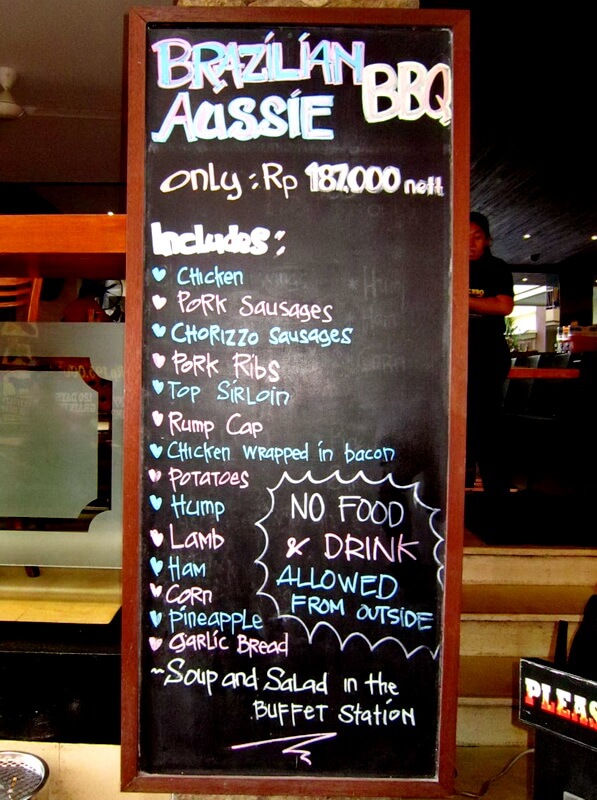 BRAZILIAN
AUSSIE BBQ
only : Rp 187.000 nett
Includes :
Chicken
Pork Sausages
CHORIZZO Sausages
Pork Ribs
Top Sirloin
Rump Cap
Chicken wrapped in bacon
Potatoes
Hump
Lamb
Ham
Corn
Pineapple
Garlic Bread
NO FOOD
& DRINK
ALLOWED
FROM OUTSIDE
~Soup and Salad in the
Buffet Station
PLEAS